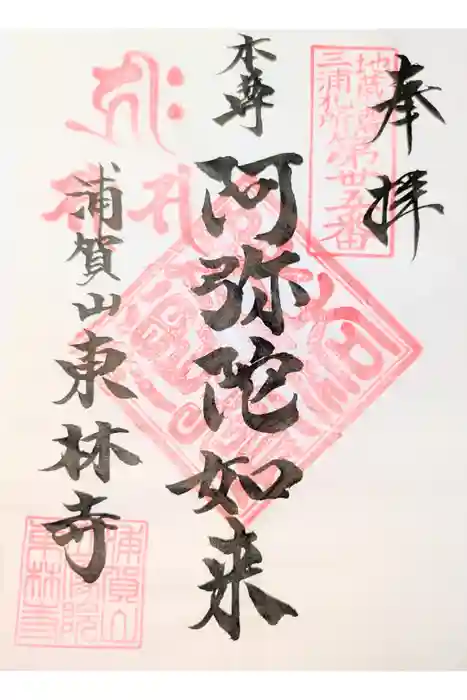 奉拝
地蔵尊
三浦札所第卅五番
本尊
阿弥陀如来
浦賀山東林寺
浦賀山
東林寺